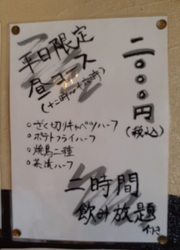 平日限定
昼コース
二〇〇〇円
(税込)
○ざく切りキャベツハーフ
○ポテトフライハーフ
○焼鳥二種
○茶漬ハーフ
二時間
飲み放題